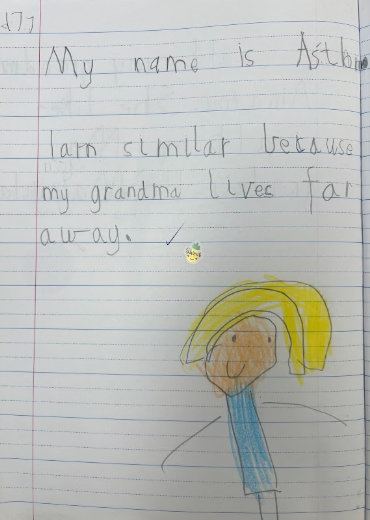 My name is
I am similar because
my grandma lives far
away.